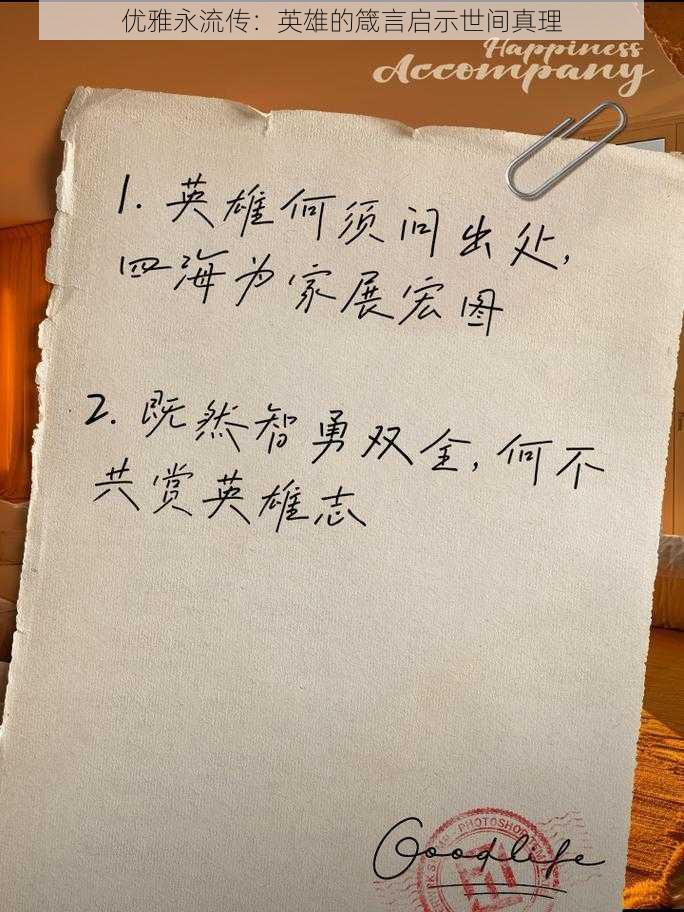 优雅永流传：英雄的箴言启示世间真理
Happiness
Accompany
1. 英雄何须问出处，
四海为家展宏图
2. 既然智勇双全，何不
共赏英雄志
PHOTOSHOP
Goodlife